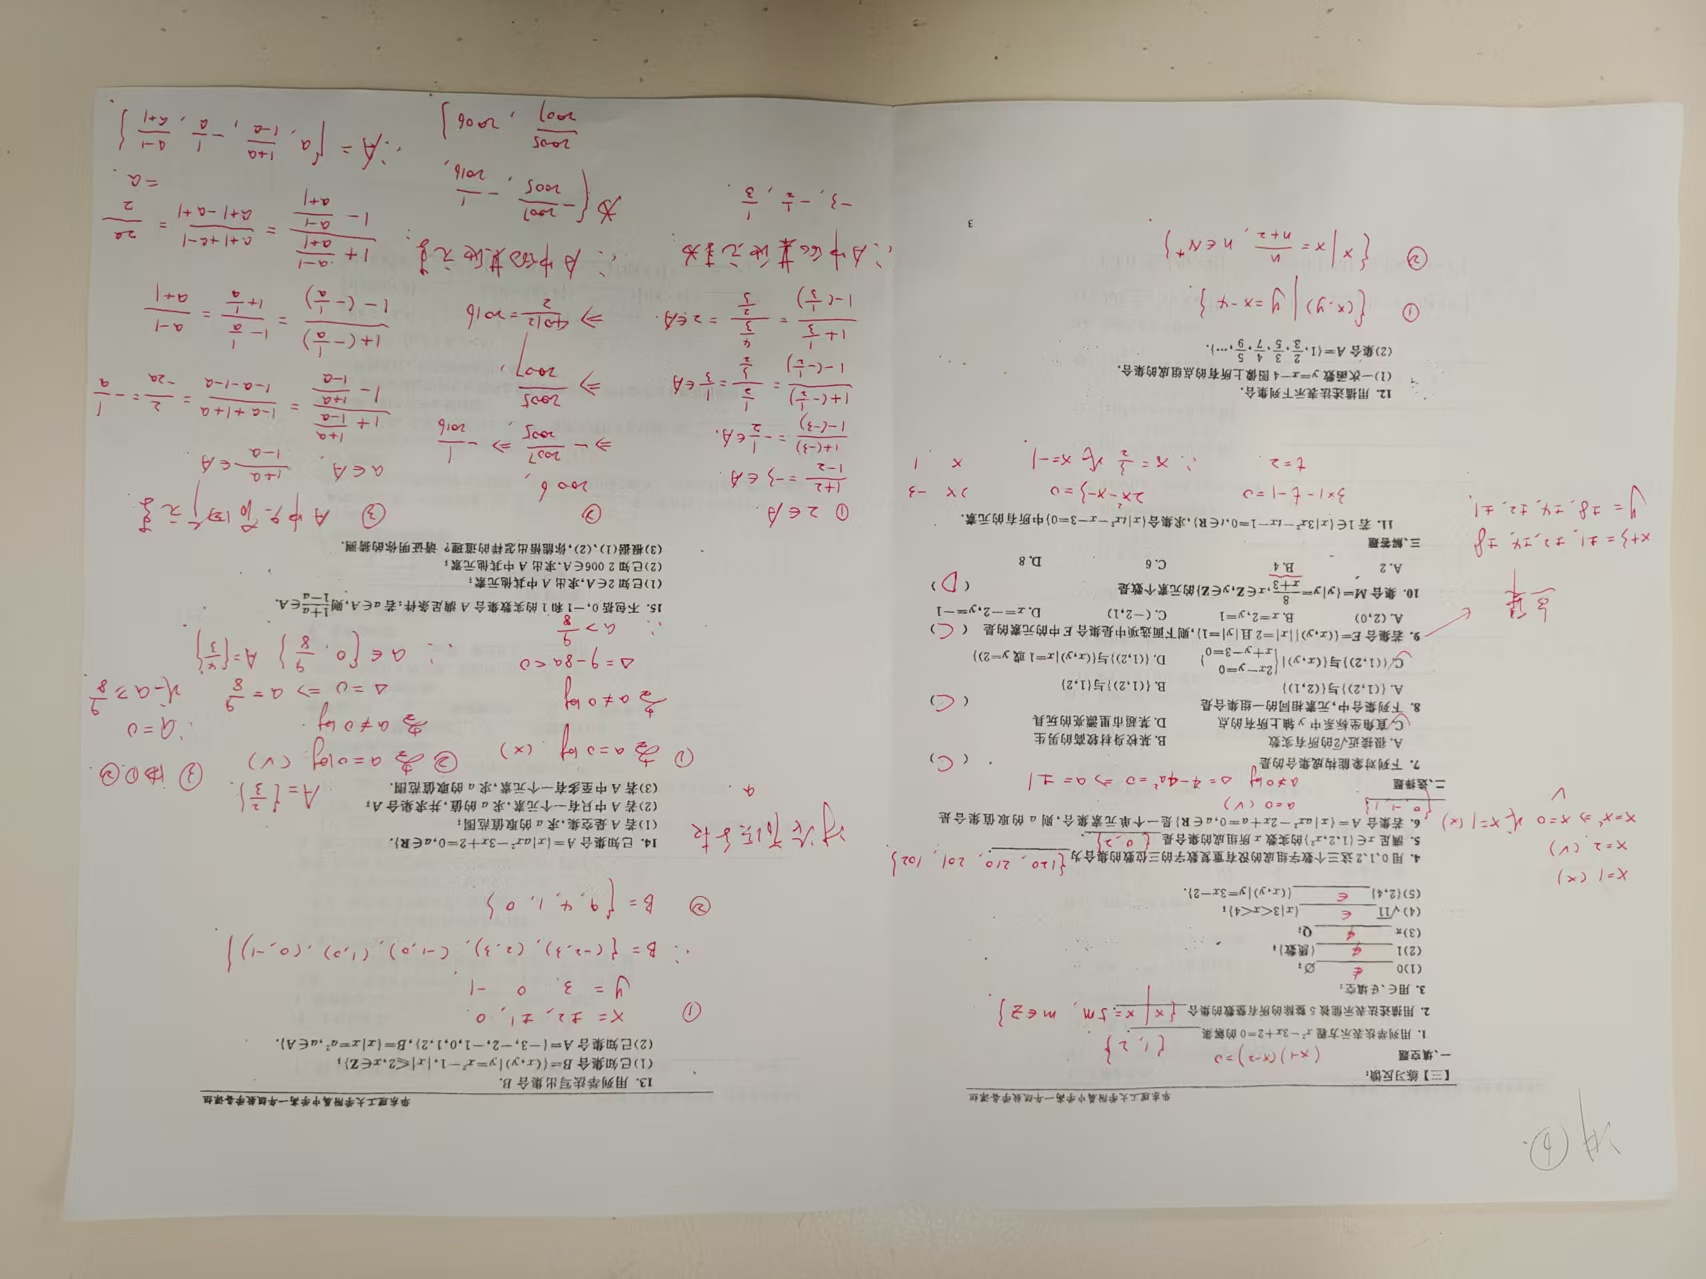 讲⑥.
华东理工大学附属中学高一年级数学备课组
【三】练习反馈:
一、填空题
(x-1)(x-2)=0
1. 用列举法表示方程 x²-3x+2=0 的解集 {1,2}.
2. 用描述法表示能被 5 整除的所有整数的集合 {x| x=5m, m∈Z}
3. 用∈、∉填空:
(1)0 ∉ ∅;
(2)1 ∉ {质数};
(3)π ∉ Q;
(4)√11 ∈ {x|3<x<4};
(5)(2,4) ∈ {(x,y)|y=3x-2}.
x=1 (×)
x=2 (√)
x=x² ⇒ x=0 或 x=1 (×)
√
4. 用 0、1、2 这三个数字组成的没有重复数字的三位数的集合为 {120, 210, 201, 102}.
5. 满足 x∈{1,2,x²}的实数 x 所组成的集合是 {0,2}.
6. 若集合 A={x|ax²-2x+a=0,a∈R}是一个单元素集合,则 a 的取值集合是
{0,-1,1}
a=0 (√)
a≠0时 Δ=4-4a²=0 ⇒ a=±1
二、选择题
7. 下列对象能构成集合的是 (C)
A. 很接近√2的所有实数 B. 某校身材较高的男生
C. 直角坐标系中 y 轴上所有的点 D. 某超市里漂亮的玩具
8. 下列集合中,元素相同的一组集合是 (C)
A. {(1,2)}与{(2,1)} B. {(1,2)}与{1,2}
C. {(1,2)}与{(x,y)|{2x-y=0 x+y-3=0} D. {(1,2)}与{(x,y)|x=1 或 y=2)}
9. 若集合 E={(x,y)||x|=2 且|y|=1},则下面选项中是集合 E 中的元素的是 (C)
点集
A. (2,0) B. x=2,y=1 C. (-2,1) D. x=-2,y=-1
10. 集合 M={y|y=8/(x+3),x∈Z,y∈Z}的元素个数是 (D)
A. 2 B. 4 C. 6 D. 8
x+3=±1, ±2, ±4, ±8
y=±8, ±4, ±2, ±1.
三、解答题
11. 若 1∈{x|3x²-tx-1=0,t∈R},求集合{x|tx²-x-3=0}中所有的元素.
3×1-t-1=0 2x²-x-3=0 2x -3
t=2. ∴ x=3/2 或 x=-1 x 1
12. 用描述法表示下列集合.
(1)一次函数 y=x-4 图像上所有的点组成的集合.
(2)集合 A={1,2/3,3/5,4/7,5/9,…}.
① {(x,y)| y=x-4}.
② {x|x=n/(n+2), n∈N⁺}
3
华东理工大学附属中学高一年级数学备课组
13. 用列举法写出集合 B.
(1)已知集合 B={(x,y)|y=x²-1,|x|≤2,x∈Z};
(2)已知集合 A={-3,-2,-1,0,1,2},B={x|x=a²,a∈A}.
① x=±2, ±1, 0
y= 3, 0 -1
∴ B={(-2,3), (2,3), (-1,0), (1,0), (0,-1)}
② B={9,4,1,0}
讨论首项系数
a.
14. 已知集合 A={x|ax²-3x+2=0,a∈R}.
(1)若 A 是空集,求 a 的取值范围;
(2)若 A 中只有一个元素,求 a 的值,并求集合 A;
(3)若 A 中至多有一个元素,求 a 的取值范围.
A={2/3}.
① 当a=0时 (×)
当a≠0时
Δ=9-8a<0
∴ a>9/8
② 当a=0时 (√)
当a≠0时.
Δ=0 ⇒ a=9/8
∴ a∈{0, 9/8} A={4/3}
③ 由①②.
∴a=0
或 a≥9/8
15. 不包括 0,-1 和 1 的实数集合 A 满足条件:若 a∈A,则(1+a)/(1-a)∈A.
(1)已知 2∈A,求出 A 中其他元素;
(2)已知 2 006∈A,求出 A 中其他元素;
(3)根据(1)、(2),你能悟出怎样的道理? 请证明你的猜测.
① 2∈A.
(1+2)/(1-2)=-3∈A.
(1+(-3))/(1-(-3))=-1/2∈A.
(1+(-1/2))/(1-(-1/2))=(1/2)/(3/2)=1/3∈A
(1+1/3)/(1-(1/3))=(4/3)/(2/3)=2∈A.
∴A中的其他元素为
-3, -1/2, 1/3.
②
2006,
⇒-2007/2005, ⇒ -1/2016
⇒ 2005/2007,
⇒ 4012/2=2016
∴A中的其他元素
为{-2007/2005, -1/2016,
2005/2007, 2006}
③ A中只有四个元素
a∈A, (1+a)/(1-a)∈A.
(1+(1+a)/(1-a))/(1-(1+a)/(1-a))=(1-a+1+a)/(1-a-1-a)=2/(-2a)=-1/a
(1+(-1/a))/(1-(-1/a))=(1-1/a)/(1+1/a)=(a-1)/(a+1)
(1+(a-1)/(a+1))/(1-(a-1)/(a+1))=(a+1+a-1)/(a+1-a+1)=2a/2
=a.
∴A={a, (1+a)/(1-a), -1/a, (a-1)/(a+1)}